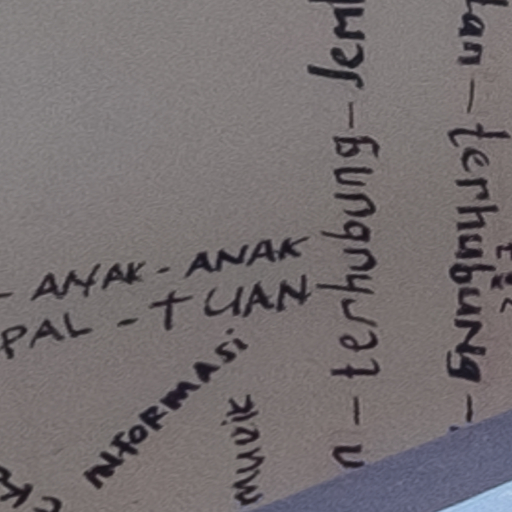 - ANAK - ANAK
PAL - TUAN
INFORMASI
n - terhubung - Jem
lan - terhubung -